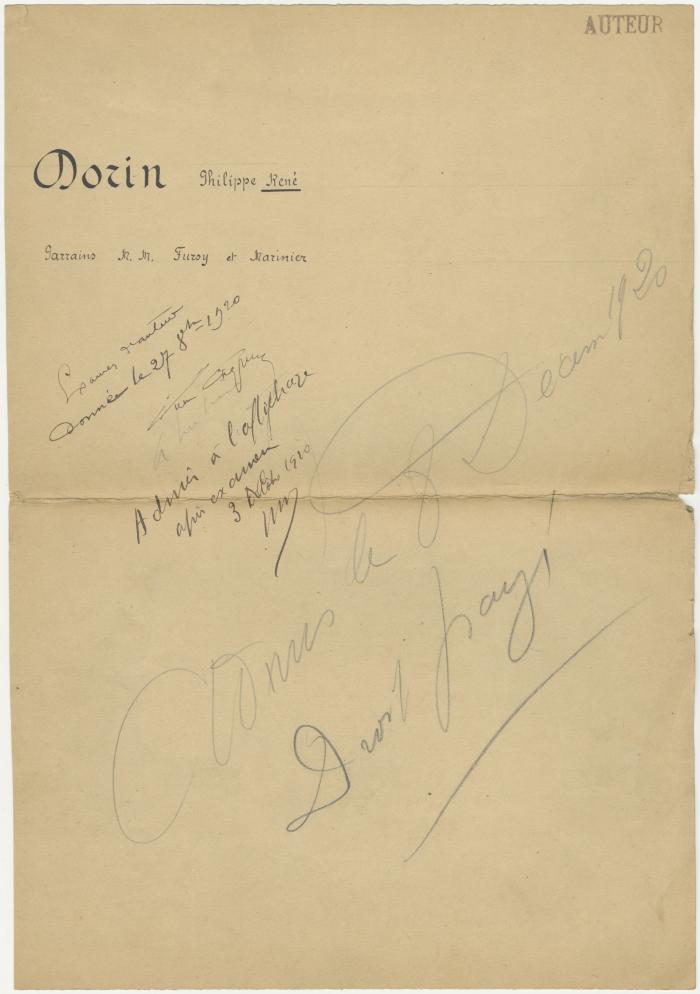 AUTEUR
Dorin Philippe René
Parrains M. M. Fursy et Marinier
Examen d'auteur
donnée le 27 8bre 1920
Admis à l'affichage
après examen
3 1920
Admis le 8 Decem 1920
Droit payé